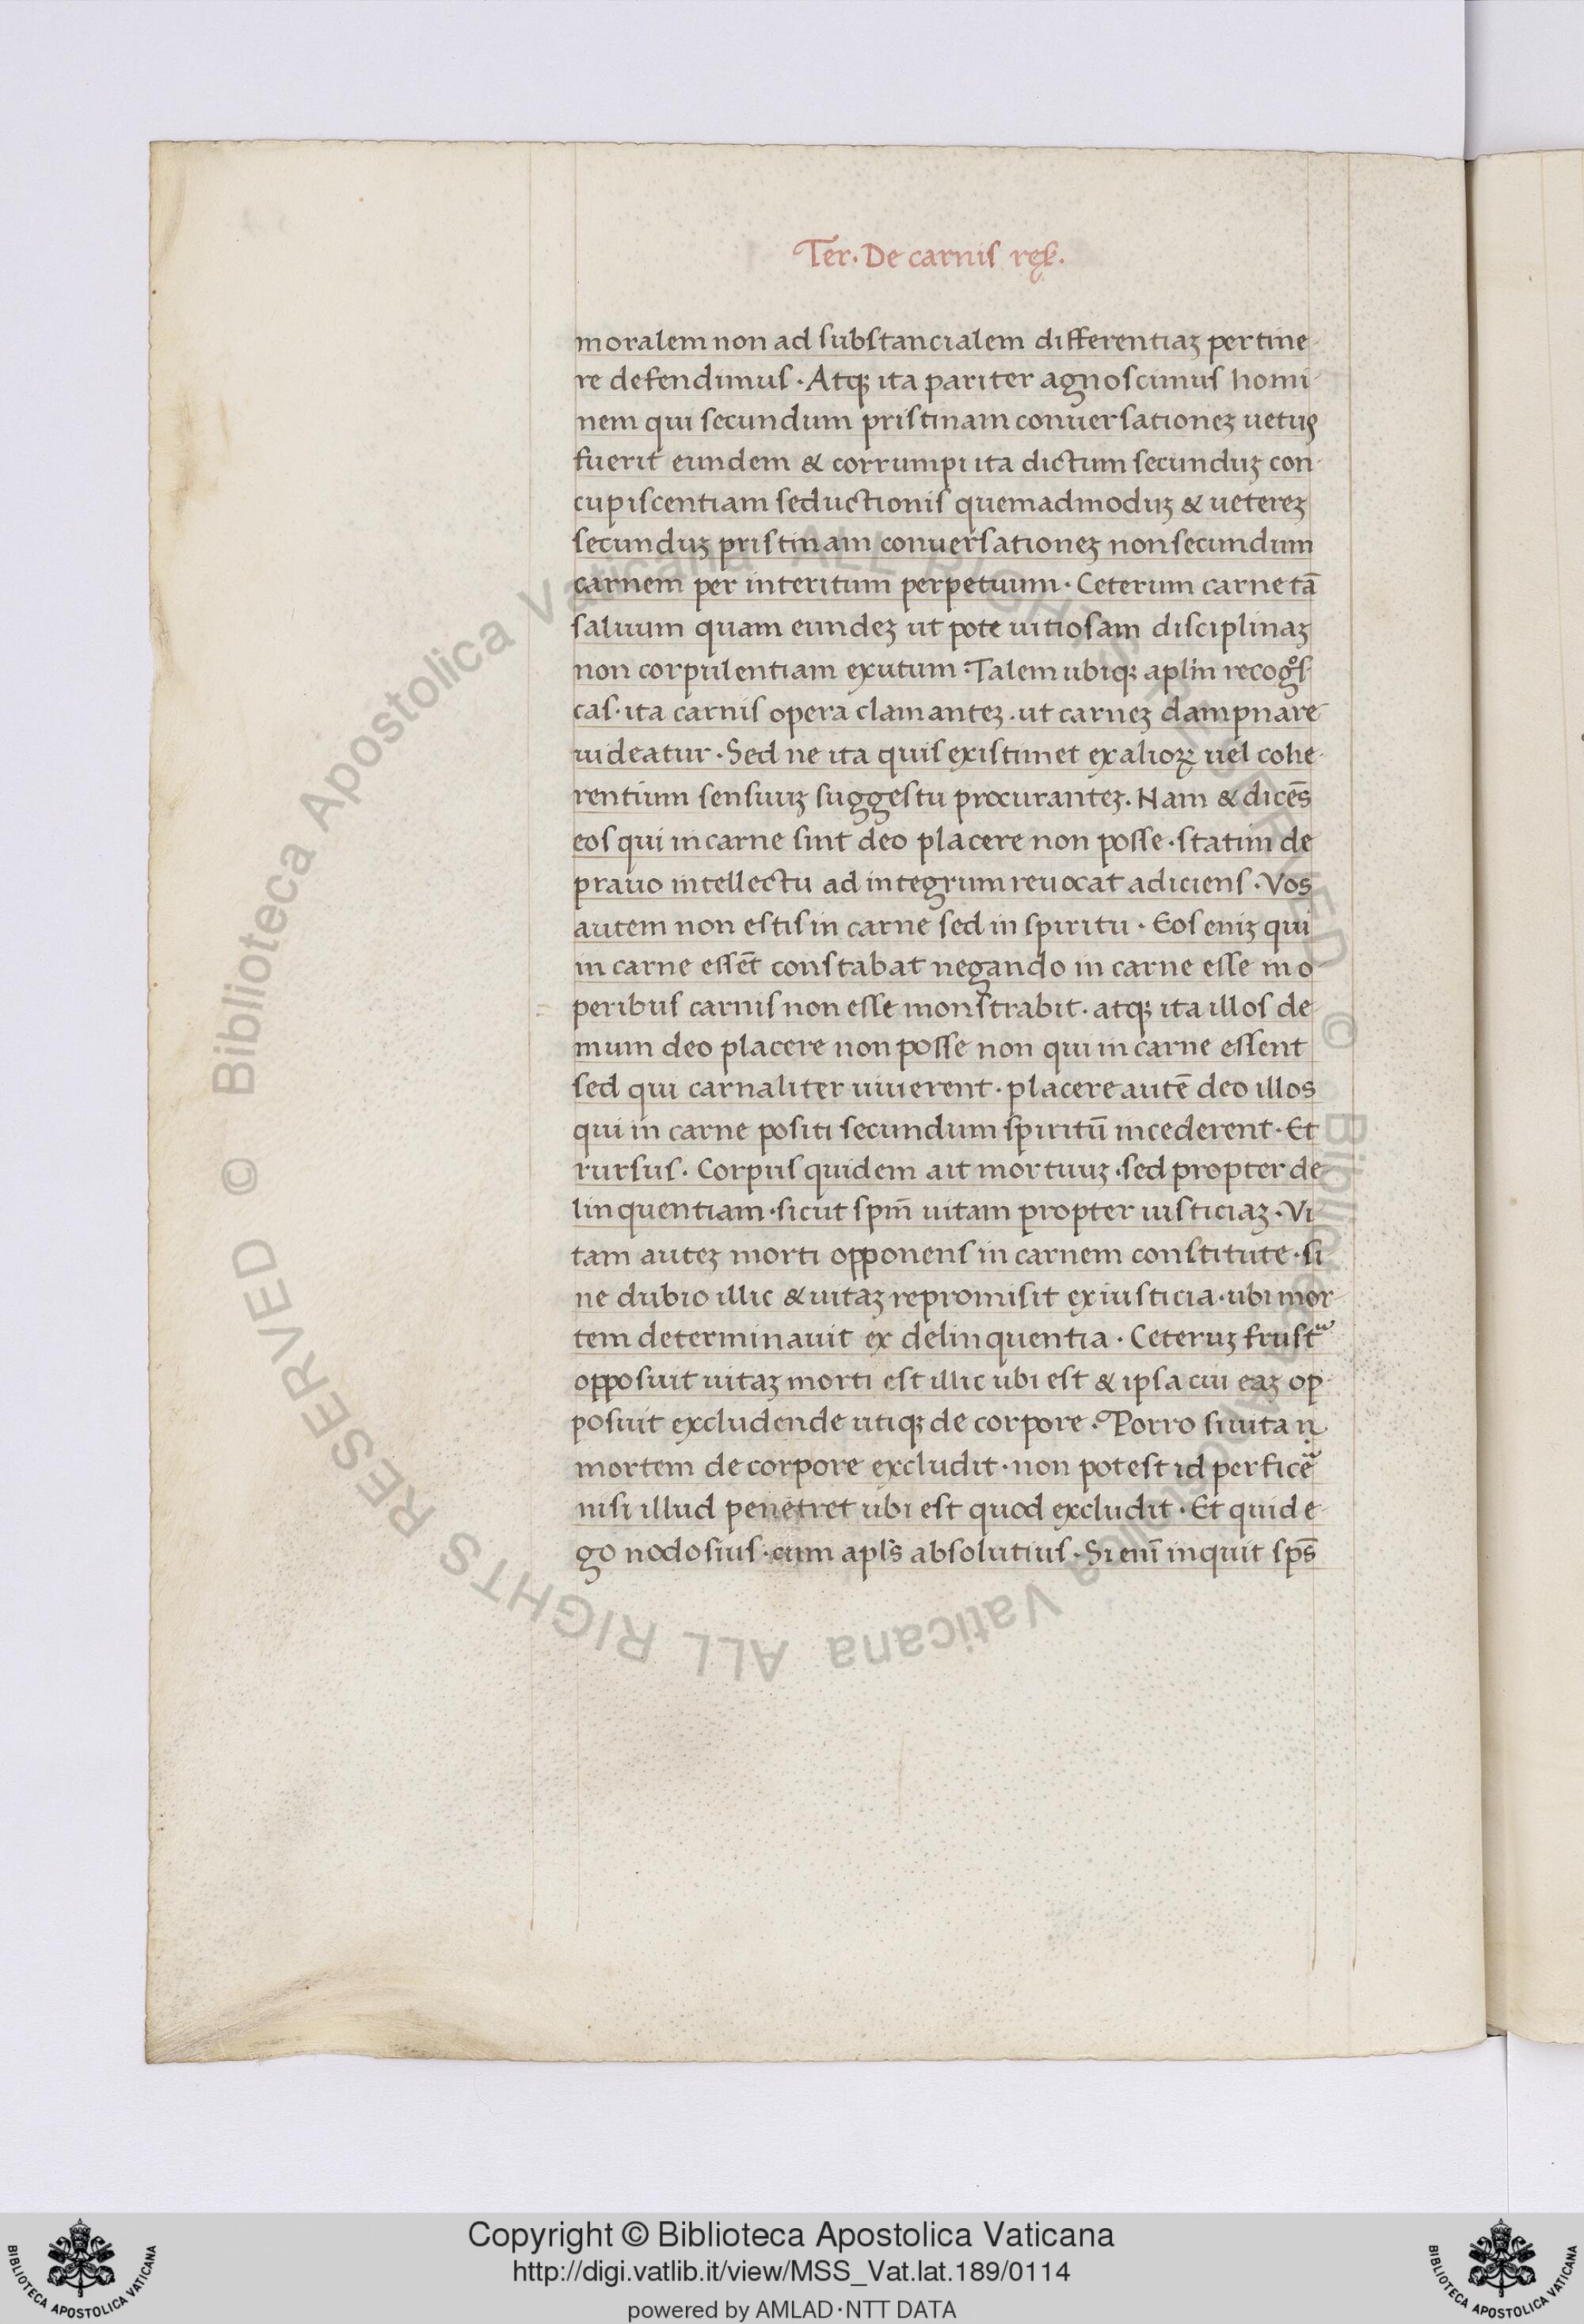 Ter. De carnis ręß.
moralem non ad substancialem differentiaꝫ pertine-
re defendimus · Atqꝫ ita pariter agnoscimus homi-
nem qui secundum pristinam conuersationeꝫ uetus
fuerit eundem & corrumpi ita dictum secunduꝫ con-
cupiscentiam seductionis quemadmoduꝫ & uetereꝫ
secunduꝫ pristinam conuersationeꝫ non secundum
carnem per interitum perpetuum · Ceterum carne tā
saluum quam eundeꝫ ut pote uitiosam disciplinaꝫ
non corpulentiam exutum · Talem ubiqꝫ aplm̄ recogͦs-
cas · ita carnis opera clamanteꝫ · ut carneꝫ dampnare
uideatur · Sed ne ita quis existimet ex alioꝝ uel cohe-
rentium sensuuꝫ suggestu procuranteꝫ. Nam & dicēs
eos qui in carne sint deo placere non posse · statim de
prauo intellectu ad integrum reuocat adiciens · Vos
autem non estis in carne sed in spiritu · Eos eniꝫ qui
in carne essēt constabat negando in carne esse in o-
peribus carnis non esse monstrabit · atqꝫ ita illos de-
mum deo placere non posse non qui in carne essent
sed qui carnaliter uiuerent · placere autē deo illos
qui in carne positi secundum spiritū incederent · Et
rursus · Corpus quidem ait mortuuꝫ · sed propter de-
linquentiam · sicut spm̄ uitam propter iusticiaꝫ · Vi
tam auteꝫ morti opponens in carnem constitute · si
ne dubio illic & uitaꝫ repromisit ex iusticia · ubi mor-
tem determinauit ex delinquentia · Ceteruꝫ frustᵃ
opposuit uitaꝫ morti est illic ubi est & ipsa cui eaꝫ op-
posuit excludende utiqꝫ de corpore · Porro si uita n̄
mortem de corpore excludit · non potest id perficeᷓ
nisi illud penetret ubi est quod excludit · Et quid e-
go nodosius · cum apl's absolutius · Si enī inquit sp̄s
© Biblioteca Apostolica Vaticana ALL RIGHTS RESERVED © Biblioteca Apostolica Vaticana ALL RIGHTS RESERVED
Copyright © Biblioteca Apostolica Vaticana
http://digi.vatlib.it/view/MSS_Vat.lat.189/0114
powered by AMLAD·NTT DATA
BIBLIOTECA APOSTOLICA VATICANA
BIBLIOTECA APOSTOLICA VATICANA